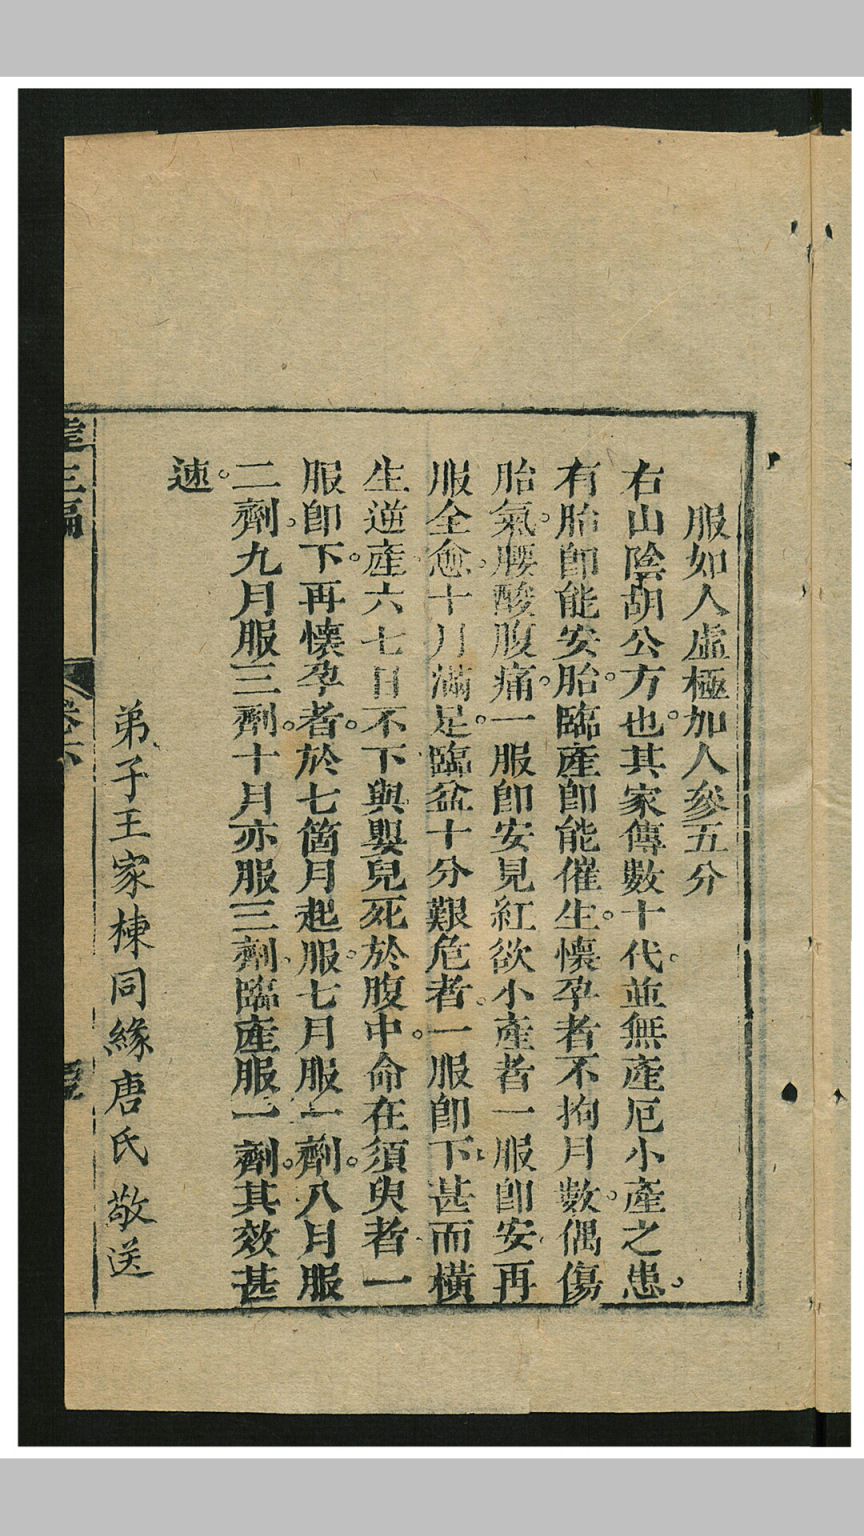 服如人虛極加人參五分
右山陰胡公方也。其家傳數十代。並無產厄小產之患。
有胎卽能安胎。臨產卽能催生。懷孕者不拘月數。偶傷
胎氣。腰酸腹痛。一服卽安見紅欲小產者一服卽安。再
服全愈。十月滿足。臨盆十分艱危者。一服卽下。甚而橫
生逆產。六七日不下與嬰兒死於腹中。命在須臾者。一
服卽下。再懷孕者。於七箇月起服。七月服一劑。八月服
二劑。九月服三劑。十月亦服三劑。臨產服一劑。其效甚
速。
弟子王家棟同緣唐氏敬送
達生編
卷下